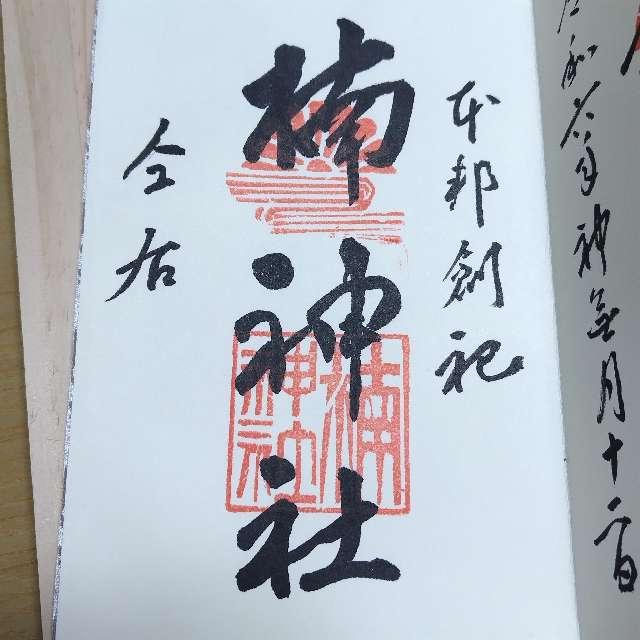 令和六年神無月十二日
本邦創祀
楠神社
楠神社